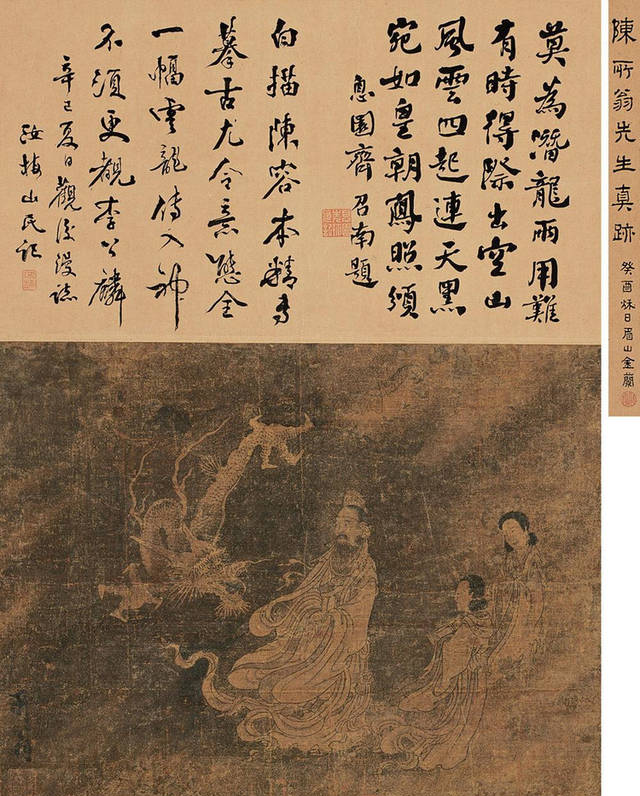 陳所翁先生真跡
癸酉秌日眉山金
莫為潛龍兩用難
有時得際出空山
風雲四起連天黑
宛如皇朝鳳照頒
息園齊召南題
白描陳容本精專
摹古尤令意態全
一幅雲龍傳入神
不須更觀李公麟
辛巳夏日觀後謾誌
山民記